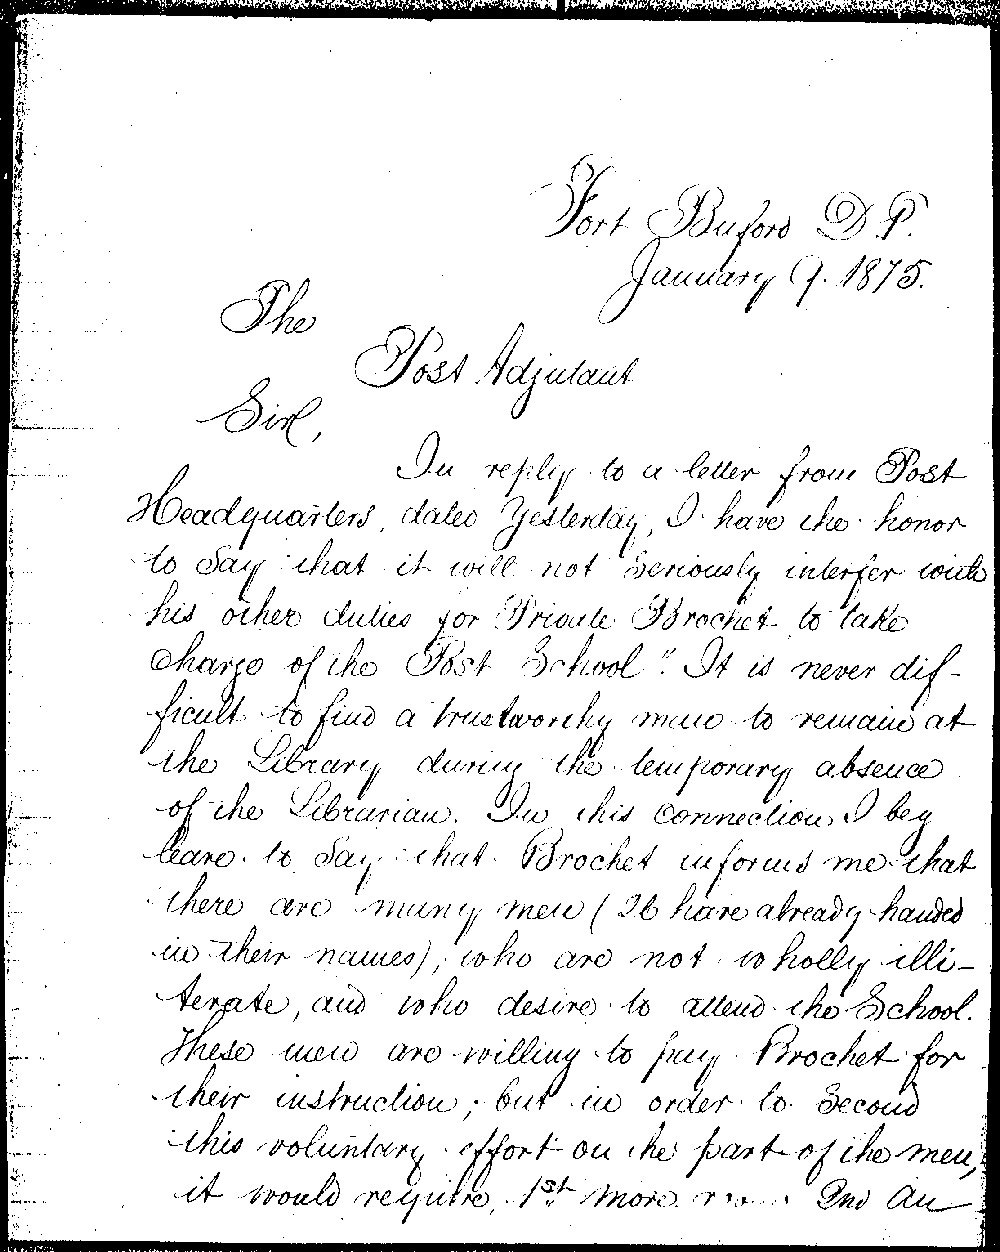 Fort Buford D.T.
January 9. 1875.
The
Post Adjutant
Sir,
In reply to a letter from Post
Headquarters, dated Yesterday, I have the honor
to Say that it will not Seriously interfer with
his other duties for Private Brochet to take
Charge of the Post School". It is never dif-
ficult to find a trustworthy man to remain at
the Library during the temporary absence
of the Librarian. In this connection I beg
leave to Say that Brochet informs me that
there are many men (26 have already handed
in their names), who are not wholly illi-
terate, and who desire to attend the School.
These men are willing to pay Brochet for
their instruction; but in order to Second
this voluntary effort on the part of the men,
it would require, 1st more 2nd An